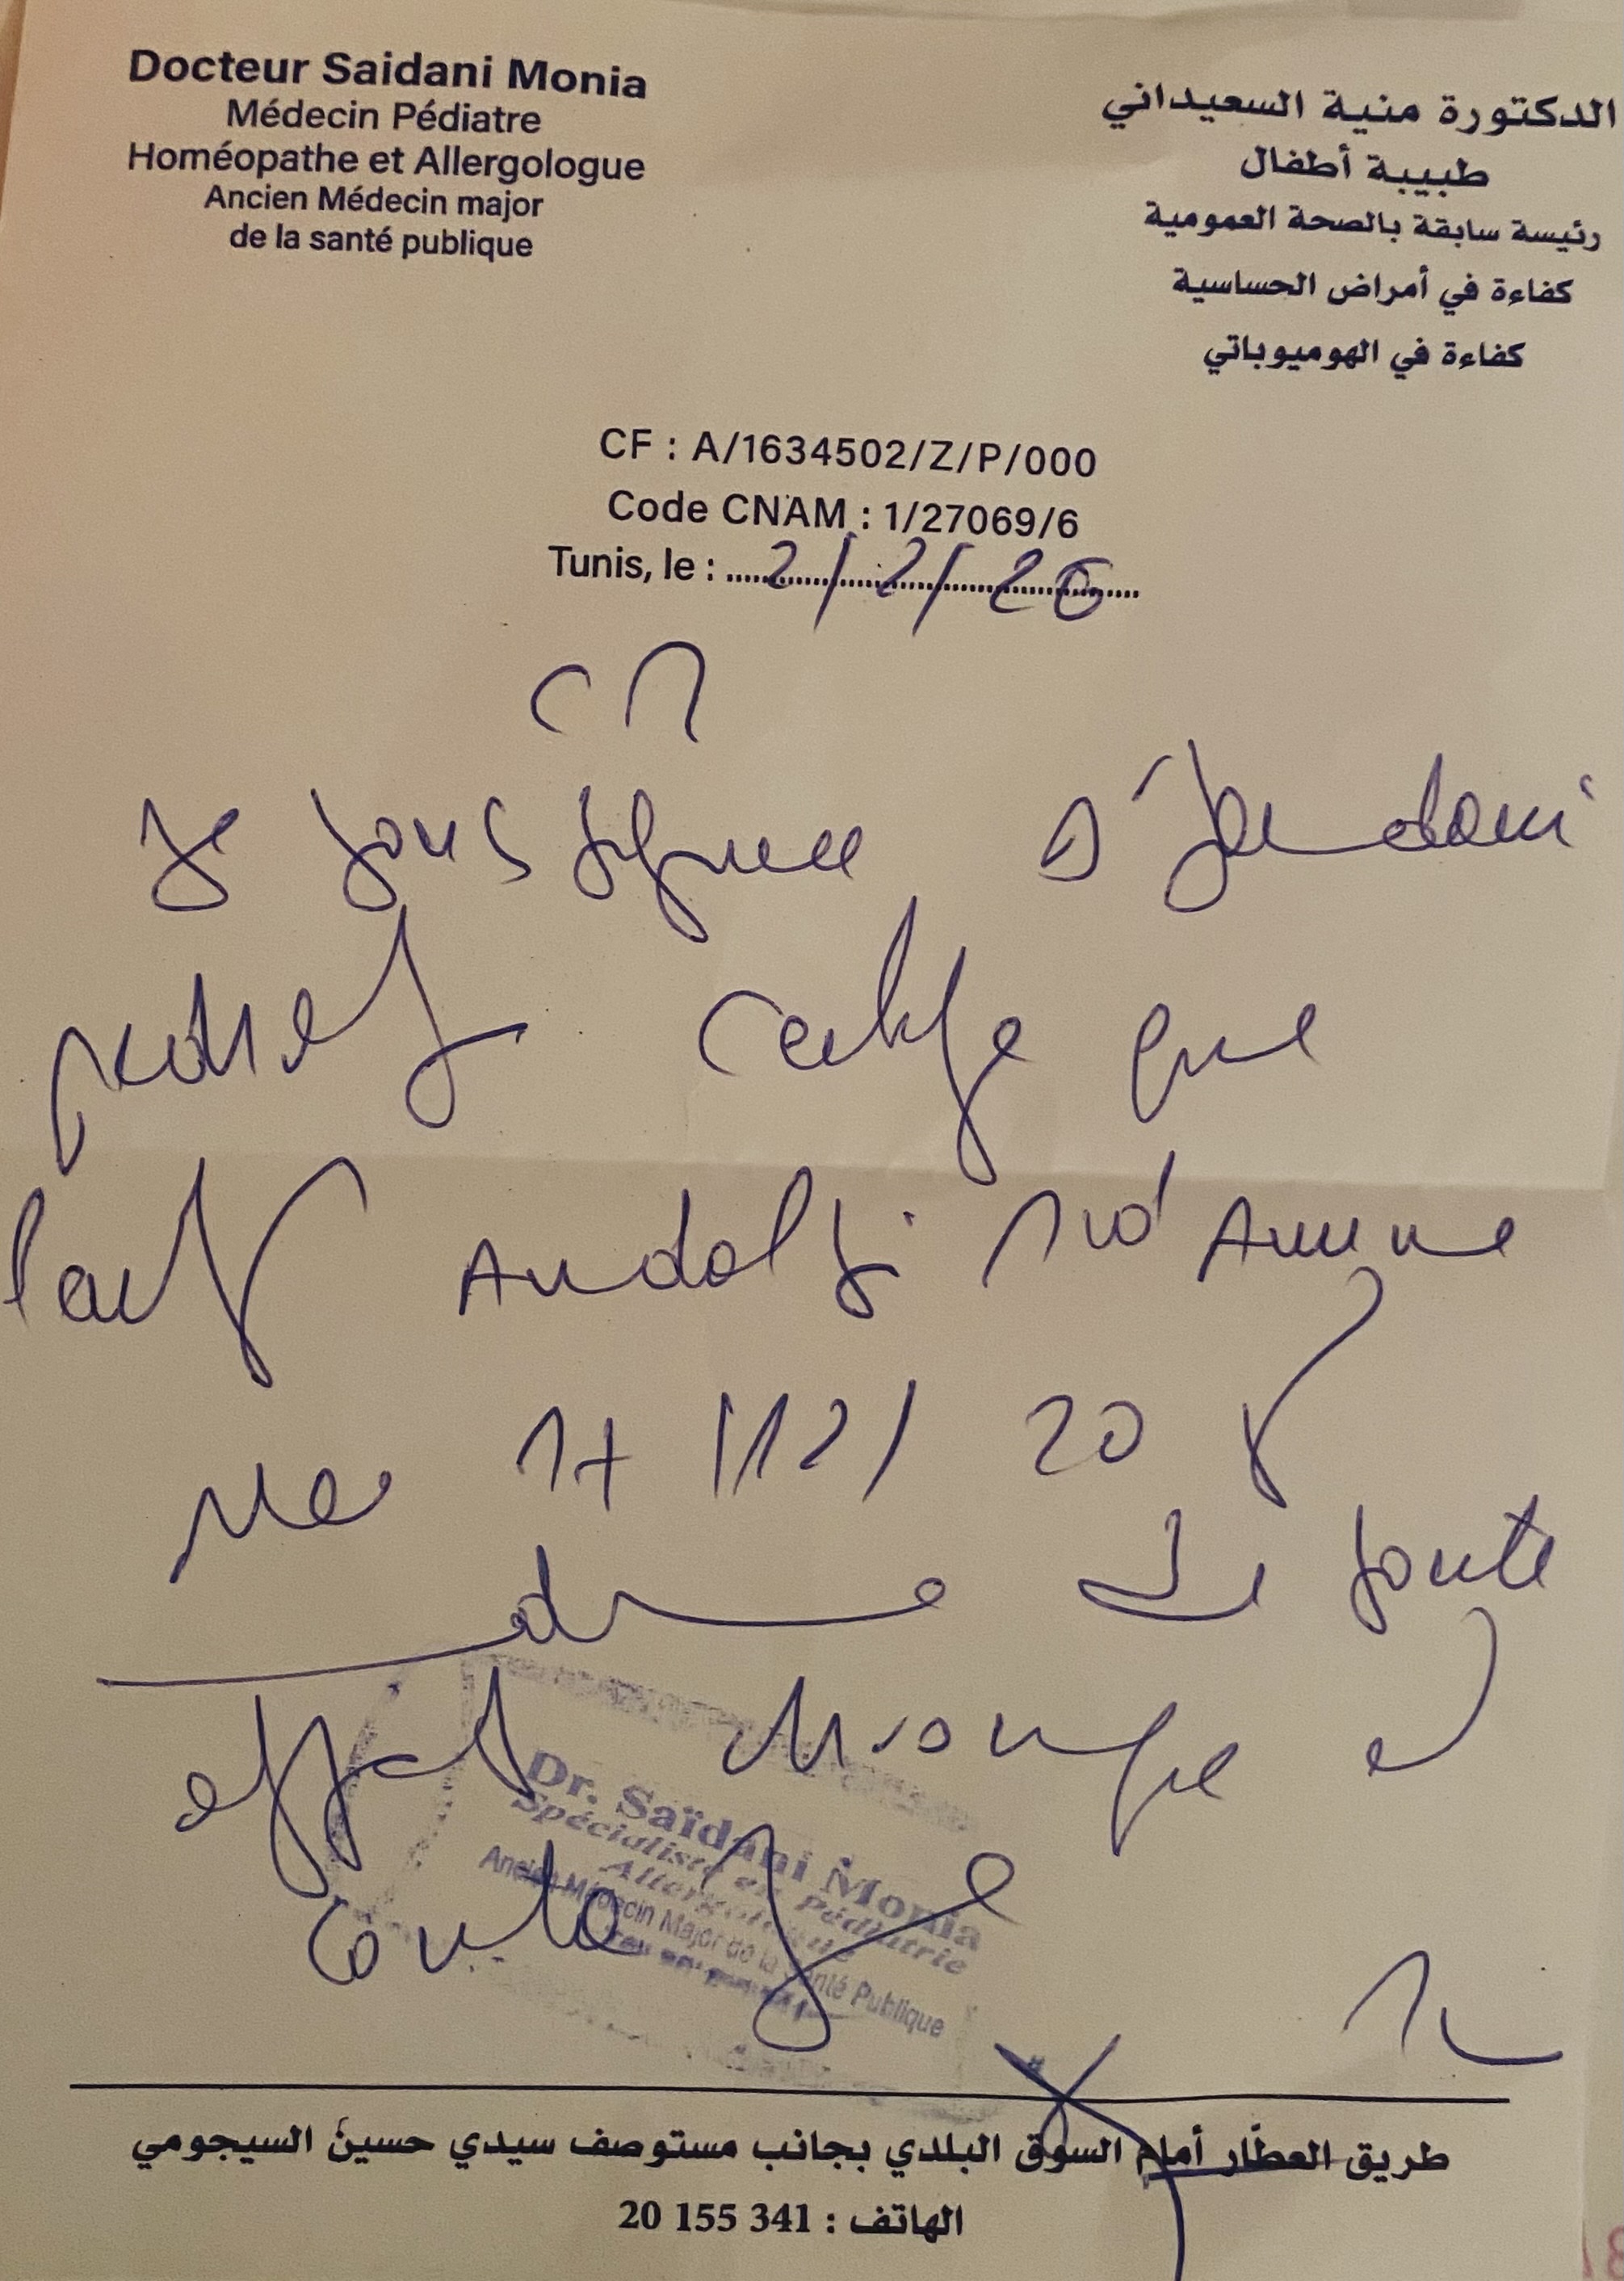 Docteur Saidani Monia
Médecin Pédiatre
Homéopathe et Allergologue
Ancien Médecin major
de la santé publique
الدكتورة منية السعيداني
طبيبة أطفال
رئيسة سابقة بالصحة العمومية
كفاءة في أمراض الحساسية
كفاءة في الهوميوباتي
CF : A/1634502/Z/P/000
Code CNAM : 1/27069/6
Tunis, le : 2/2/26
CM
Je soussignée Dr Saidani
certifie que
l'enft Andolsi Md Amine
Née 17/12/20
de toute
affect chronique et
contagieuse
Dr. Saïdani Monia
Spécialiste en Pédiatrie
Allergologie
Ancien Médecin Major de la Santé Publique
طريق العطّار أمام السوق البلدي بجانب مستوصف سيدي حسين السيجومي
الهاتف : 341 155 20